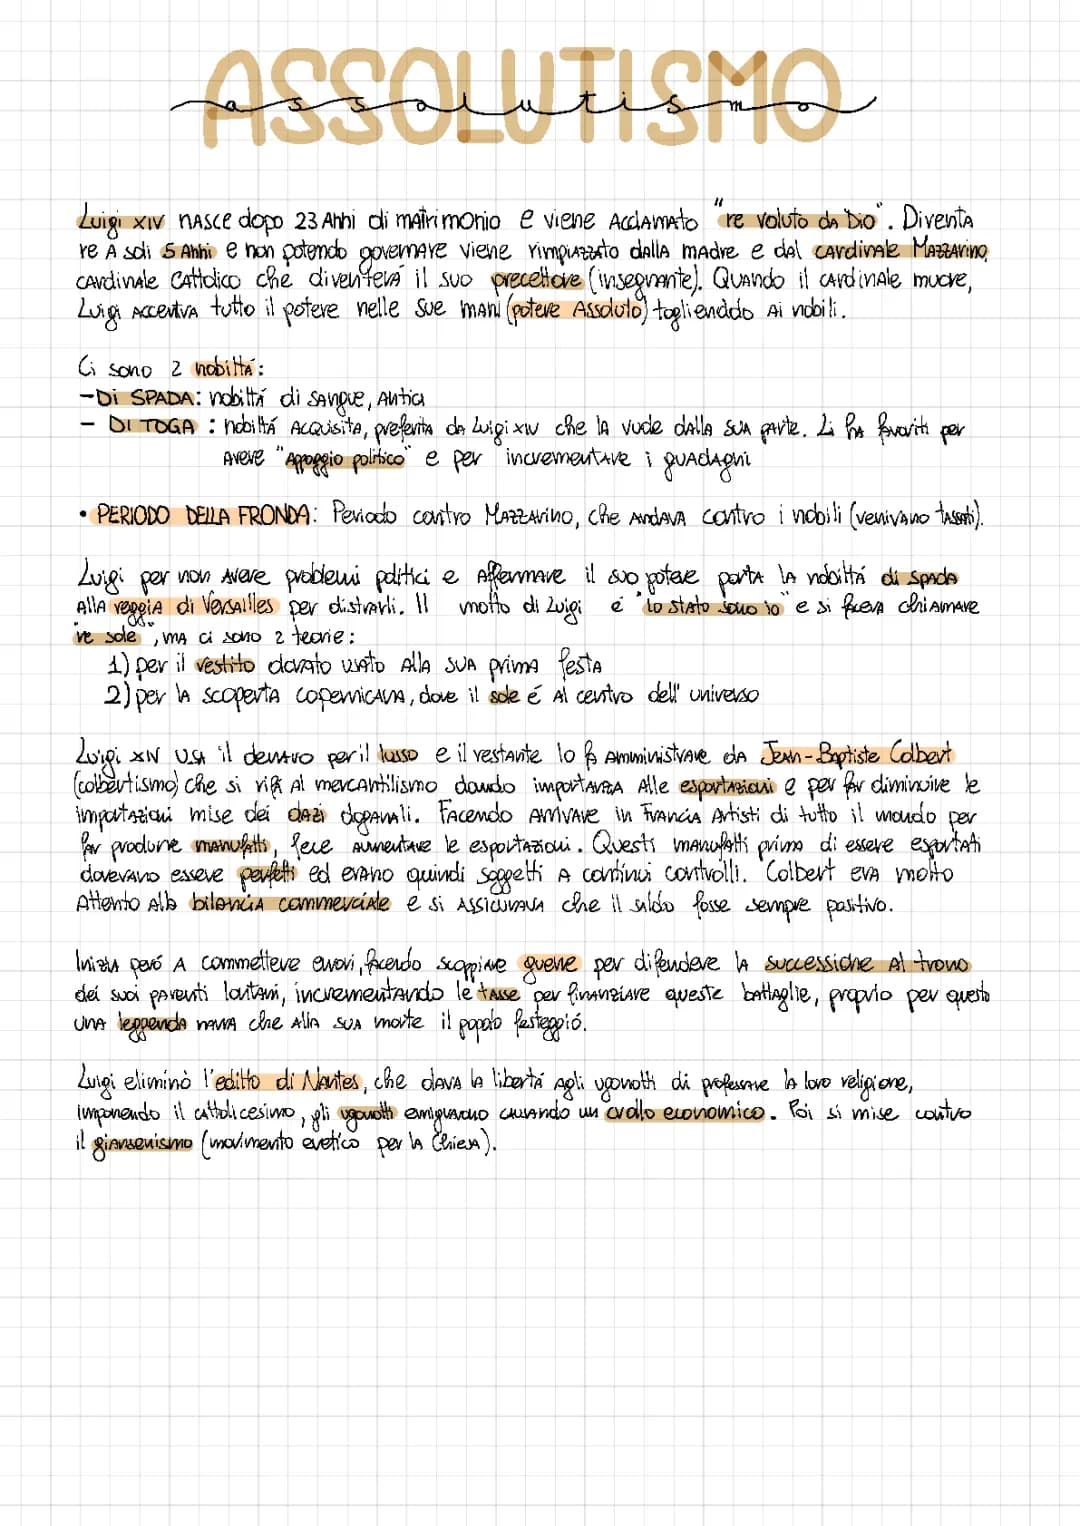 ASSOLUTISMO
assolutismo
Luigi XIV nasce dopo 23 Anni di matrimonio e viene Acclamato "re voluto da Dio". Diventa
re A soli 5 Anni e non potendo governare viene rimpiazzato dalla madre e dal cardinale Mazzarino,
cardinale Cattolico che diventerá il suo precettore (insegnante). Quando il cardinale muore,
Luigi Accentra tutto il potere nelle sue mani (potere Assoluto) togliendolo Ai nobili.
Ci sono 2 nobiltá:
-Di SPADA: nobiltá di sangue, Antica
- DI TOGA : nobiltá Acquisita, preferita da Luigi XIV che la vuole dalla sua parte. Li ha favoriti per
avere "Appoggio politico" e per incrementare i guadagni
• PERIODO DELLA FRONDA: Periodo contro Mazzarino, che Andava contro i nobili (venivano tassati).
Luigi per non Avere problemi politici e Affermare il suo potere porta la nobiltá di spada
Alla reggia di Versailles per distrarli. Il motto di Luigi é "lo stato sono io" e si faceva chiamare
"re sole", ma ci sono 2 teorie:
1) per il vestito dorato usato Alla sua prima festa
2) per la scoperta copernicana, dove il sole é Al centro dell' universo
Luigi XIV usa il denaro per il lusso e il restante lo fa Amministrare da Jean-Baptiste Colbert
(colbertismo) che si rifá al mercantilismo dando importanza Alle esportazioni e per far diminuire le
importazioni mise dei dazi doganali. Facendo Arrivare in Francia Artisti di tutto il mondo per
far produrre manufatti, fece Aumentare le esportazioni. Questi manufatti prima di essere esportati
dovevano essere perfetti ed erano quindi soggetti A continui controlli. Colbert era molto
Attento Alla bilancia commerciale e si Assicurava che il saldo fosse sempre positivo.
Inizia peró A commettere errori, facendo scoppiare guerre per difendere la successione Al trono
dei suoi parenti lontani, incrementando le tasse per finanziare queste battaglie, proprio per questo
una leggenda narra che Alla sua morte il popolo festeggió.
Luigi eliminò l'editto di Nantes, che dava la libertá Agli ugonotti di professare la loro religione,
imponendo il cattolicesimo, gli ugonotti emigrarono causando un crollo economico. Poi si mise contro
il giansenismo (movimento eretico per la Chiesa).